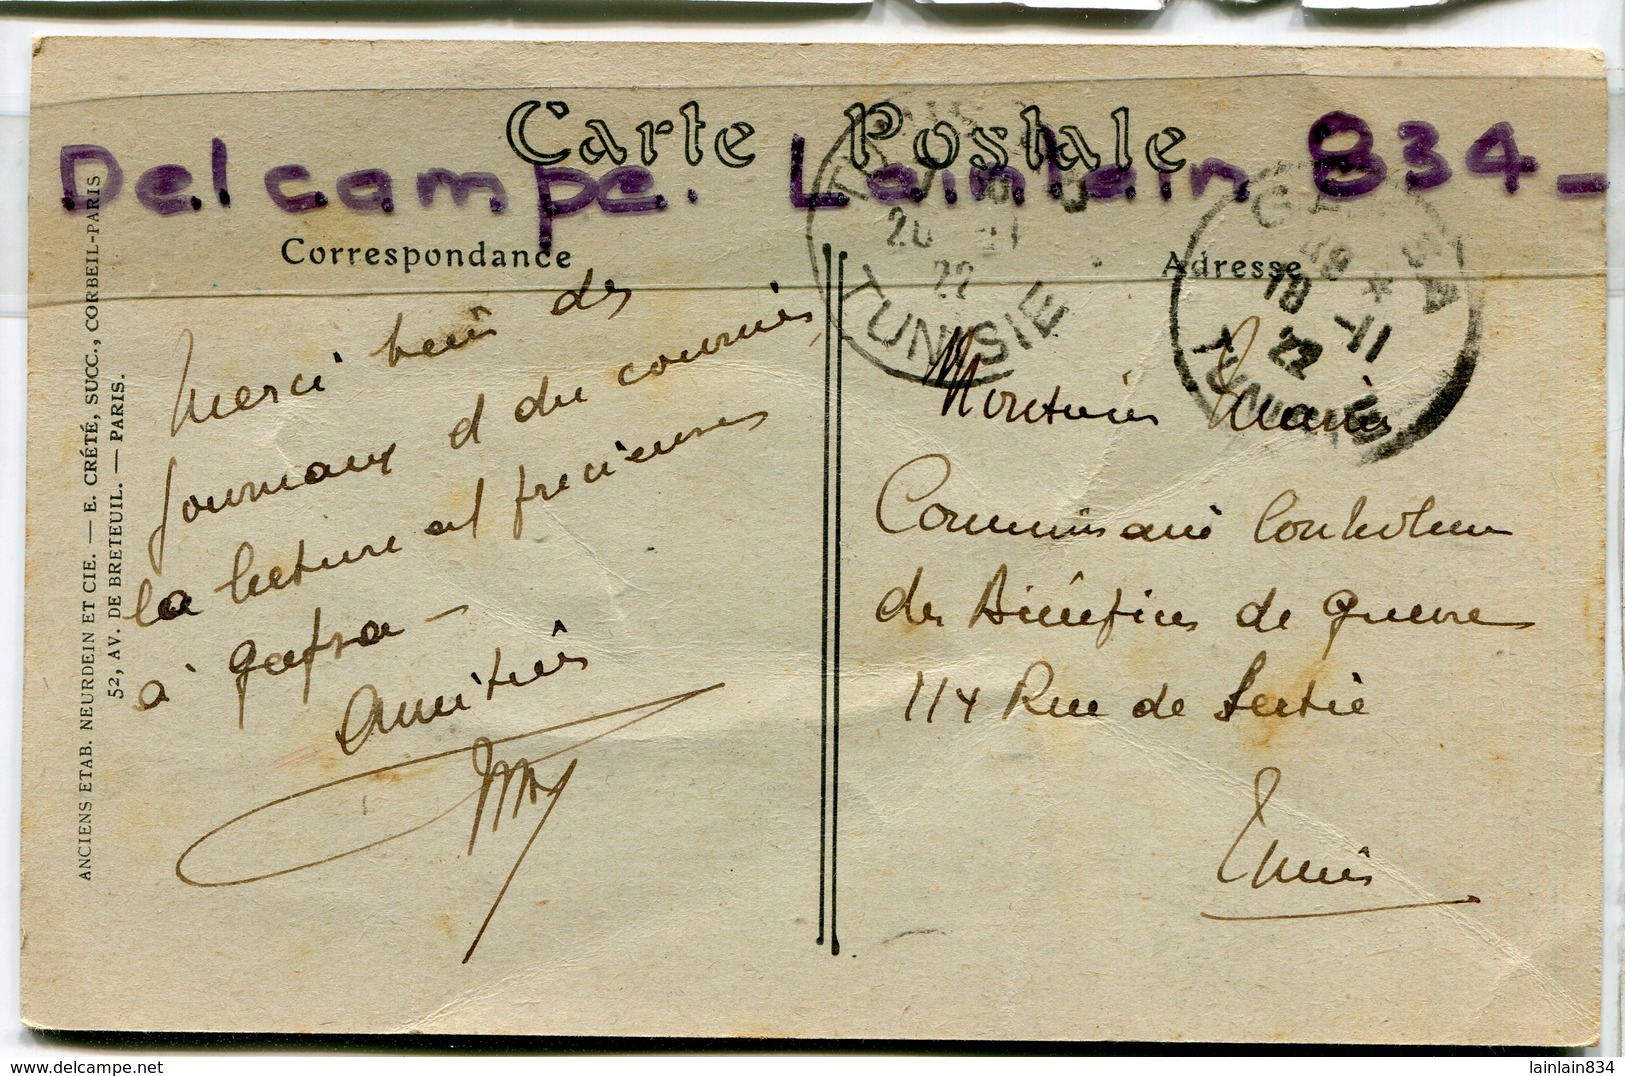 Carte Postale
Delcampe. Lainlain 834_
Correspondance
Adresse
ANCIENS ETAB. NEURDEIN ET CIE. — E. CRÉTÉ, SUCC., CORBEIL-PARIS
52, AV. DE BRETEUIL. — PARIS.
Merci bein des
journaux et du courrier,
la lecture est précieuse
à Gafsa —
Amitiés
TUNIS
20 11
22
TUNISIE
GAFSA
18 -11
22
TUNISIE
Monsieur
Commissaire Contrôleur
des Bénéfices de guerre
114 Rue de Serbie
Tunis
lainlain834